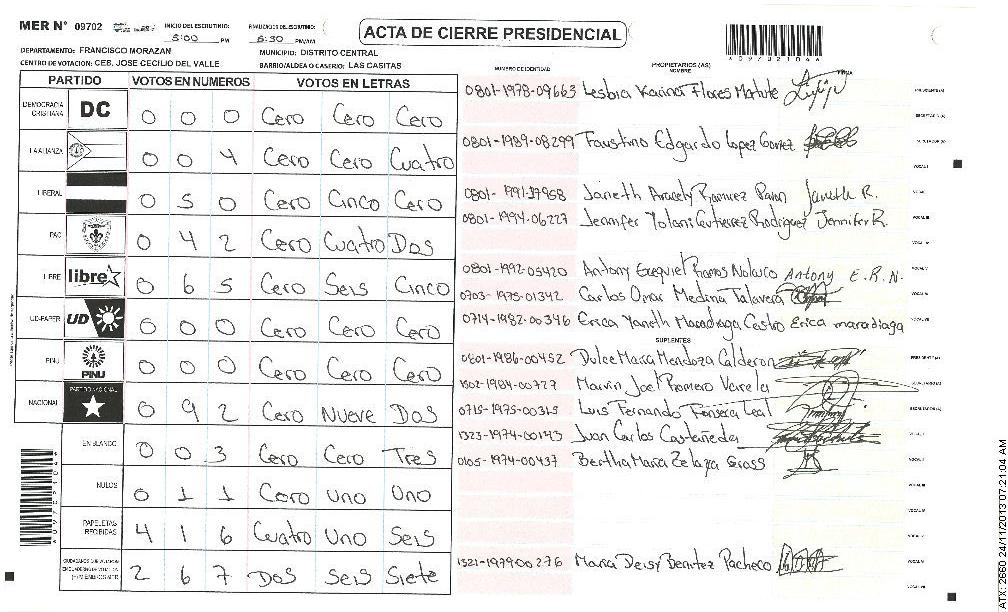 MER N° 09702
INICIO DEL ESCRUTINIO: 5:00 PM
FINALIZACION DEL ESCRUTINIO: 6:30 PM/AM
ACTA DE CIERRE PRESIDENCIAL
DEPARTAMENTO: FRANCISCO MORAZAN
MUNICIPIO: DISTRITO CENTRAL
CENTRO DE VOTACION: CEB. JOSE CECILIO DEL VALLE
BARRIO/ALDEA O CASERIO: LAS CASITAS
PARTIDO VOTOS EN NUMEROS VOTOS EN LETRAS
DEMOCRACIA CRISTIANA DC 0 0 0 Cero Cero Cero
LA ALIANZA 0 0 4 Cero Cero Cuatro
LIBERAL 0 5 0 Cero Cinco Cero
PAC 0 4 2 Cero Cuatro Dos
LIBRE libre 0 6 5 Cero Seis Cinco
UD-FAPER UD 0 0 0 Cero Cero Cero
PINU PINU 0 0 0 Cero Cero Cero
NACIONAL PARTIDO NACIONAL 0 9 2 Cero Nueve Dos
EN BLANCO 0 0 3 Cero Cero Tres
NULOS 0 1 1 Cero Uno Uno
PAPELETAS RECIBIDAS 4 1 6 Cuatro Uno Seis
2 6 7 Dos Seis Siete
NUMERO DE IDENTIDAD
PROPIETARIOS (AS)
NOMBRE
FIRMA
0801-1978-09663 Lesbia Karina Flores Matute
0801-1989-08299 Faustino Edgardo Lopez Gomez
0801-1991-17958 Janeth Aracely Ramirez Janeth R.
0801-1994-06227 Jennifer Yolani Gutierrez Rodriguez Jennifer R.
0801-1992-05420 Antony Exequiel Ramos Nolasco Antony E.R.N.
0703-1975-01342 Carlos Omar Medina Talavera
0714-1982-00346 Erica Yaneth Maradiaga Castro Erica maradiaga
SUPLENTES
0801-1986-00452 Dulce Maria Mendoza Calderon
1502-1984-00727 Marvin Joel Romero Varela
0715-1975-00315 Luis Fernando Fonseca Leal
1323-1974-00143 Juan Carlos Castañeda
0105-1974-00437 Bertha Maria Zelaya Gross
1321-1979-00276 Maria Deisy Benitez Pacheco
24/11/2013 07:21:04 AM